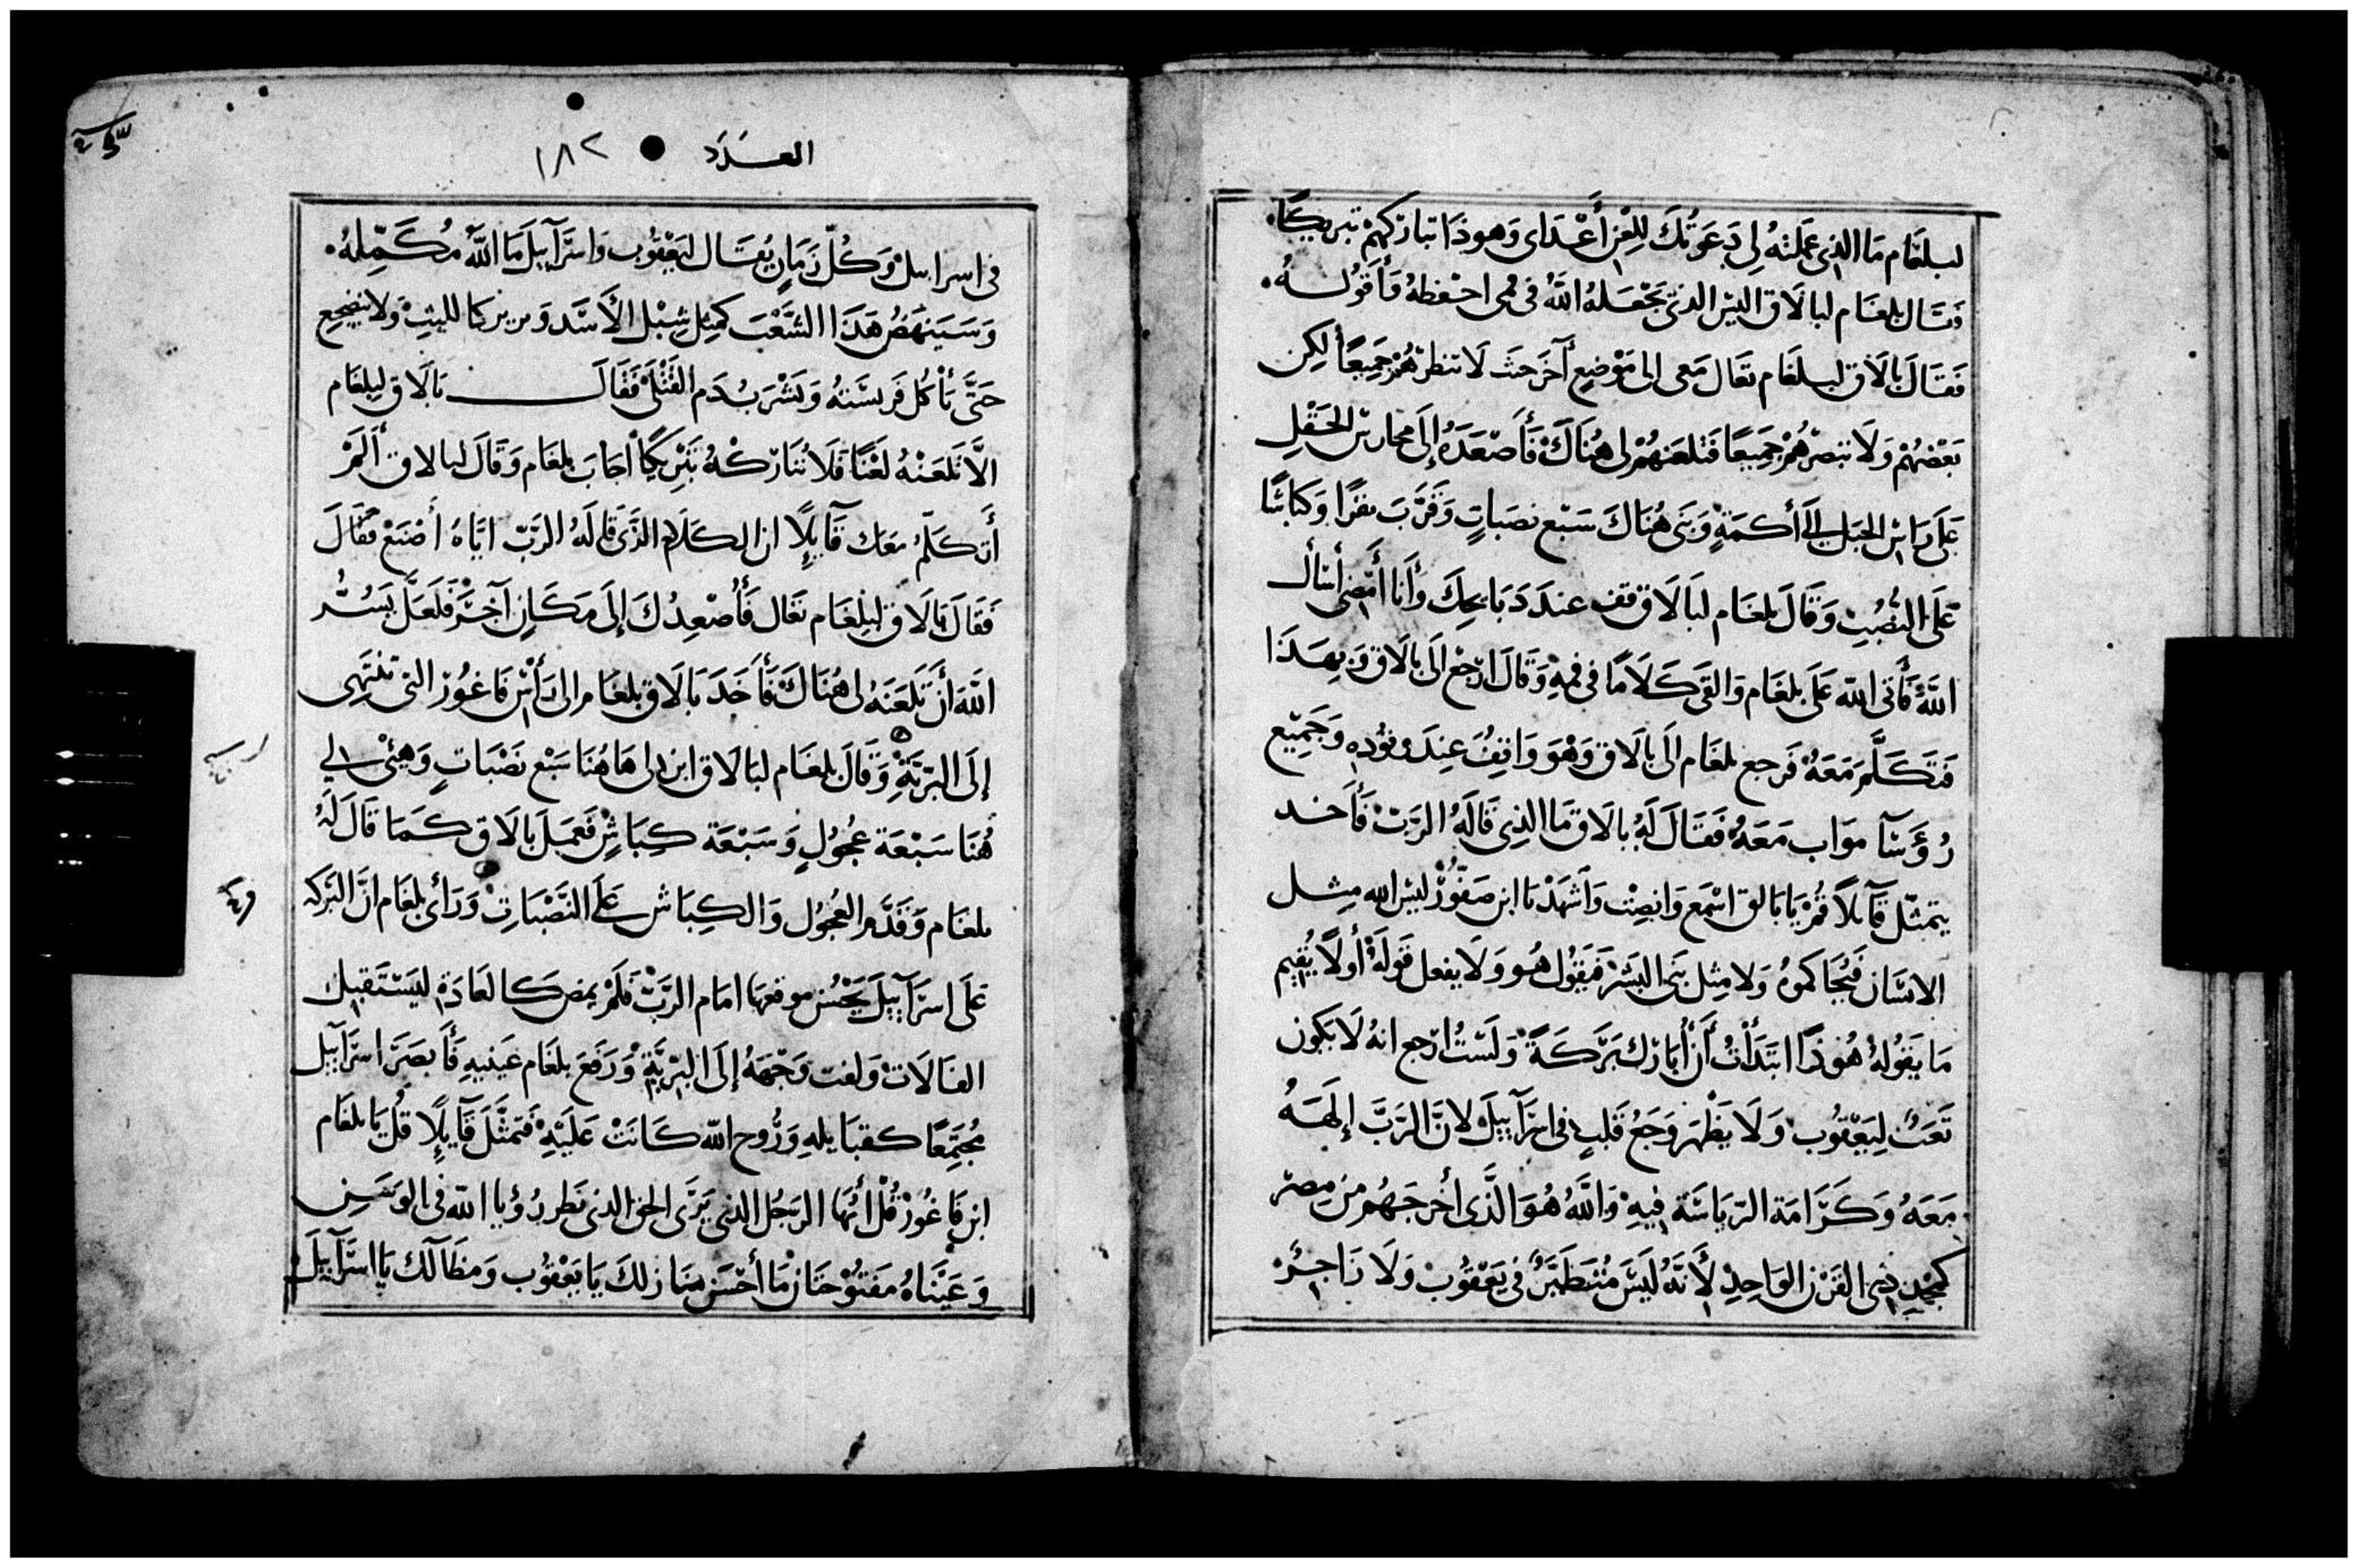 لبلغام ما الذي عملته لي دعوتك للعن أعداي وهوذا تباركهم تبريكًا.
فقال بلغام لبالاق اليس الذي يجعله الله في فمي احفظه وأقوله.
فقال بالاق لبلغام تعال معي الى موضع آخر حيث لا تنظرهم جميعًا لكن
بعضهم ولا تبصرهم جميعًا فتلعنهم لي هناك فأصعده إلى محارس الحقل
على راس الجبل إلى أكمةٍ وبنى هناك سبع نصبات وقرب بقرًا وكباشًا
على النصب وقال بلغام لبالاق قف عند دبايحك وأنا أمضي أسأل
الله فأتى الله على بلغام والقى كلامًا في فمه وقال ارجع الى بالاق وبهذا
فتكلم معه فرجع بلغام الى بالاق وهو واقف عند وقوده وجميع
رؤسآ مواب معه فقال له بالاق ما الذي قاله الرب فأخد
يتمثل قآيلاً قم يا بالاق اسمع وانصت واشهد يا ابن صفور ليس الله مثل
الانسان فيحاكموه ولا مثل بني البشر فيقول هو ولا يفعل قوله أولا يقيم
ما يقوله هوذا ابتدأت أن أبارك بركة ولست ارجع انه لا يكون
تعب ليعقوب ولا يظهر وجع قلب في اسرآييل لان الرب إلهه
معه وكرامة الرياسة فيه والله هو الذي أخرجهم من مصر
كمجد ذي القرن الواحد لأنه ليس متطير في يعقوب ولا زاجر
العدد ١٨٢
في اسراييل وكل زمان يقال ليعقوب واسرآييل ما الله مكمله.
وسينهض هذا الشعب كمثل شبل الأسد ويربركا لليث ولا ينضجع
حتى يأكل فريسته ويشرب دم القتلى فقال بالاق لبلغام
الا تلعنه لعنًا فلا تباركه تبريكًا أجاب بلغام وقال لبالاق ألم
أتكلم معك قآيلًا ان الكلام الذي قاله الرب اياه أصنع فقال
فقال بالاق لبلغام تعال فأصعدك إلى مكان آخر فلعل يسر
الله أن تلعنه لي هناك فأخد بالاق بلغام الى رأس فاغور التي تنتهي
إلى البرية وقال بلغام لبالاق ابن لي هاهنا سبع نصبات وهيئ لي
هنا سبعة عجول وسبعة كباش فعمل بالاق كما قال له
بلغام وقدم العجول والكباش على النصبات ورأى بلغام ان البركه
على اسرآييل يحسن موقعها امام الرب فلم يمض كالعادة ليستقبل
الفالات ولفت وجهه إلى البرية ورفع بلغام عينيه فأبصر اسرآييل
مجتمعًا كقبايله وروح الله كانت عليه فتمثل قآيلًا قل يا بلغام
ابن فاغور قل أيها الرجل الذي يرى الحق الذي نظر رؤيا الله في الوسن
وعيناه مفتوحتان ما أحسن منازلك يا يعقوب ومظالك يا اسرآييل